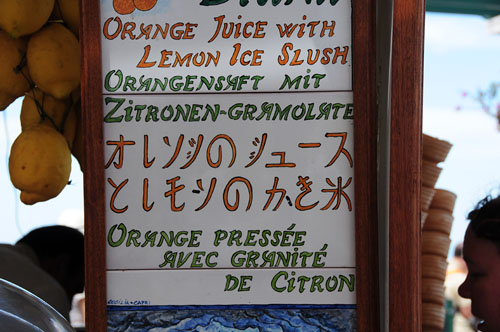 ORANGE JUICE WITH
LEMON ICE SLUSH
ORANGENSAFT MIT
ZITRONEN-GRAMOLATE
オレンジのジュース
とレモンのかき氷
ORANGE PRESSÉE
AVEC GRANITÉ
DE CITRON
CAPRI